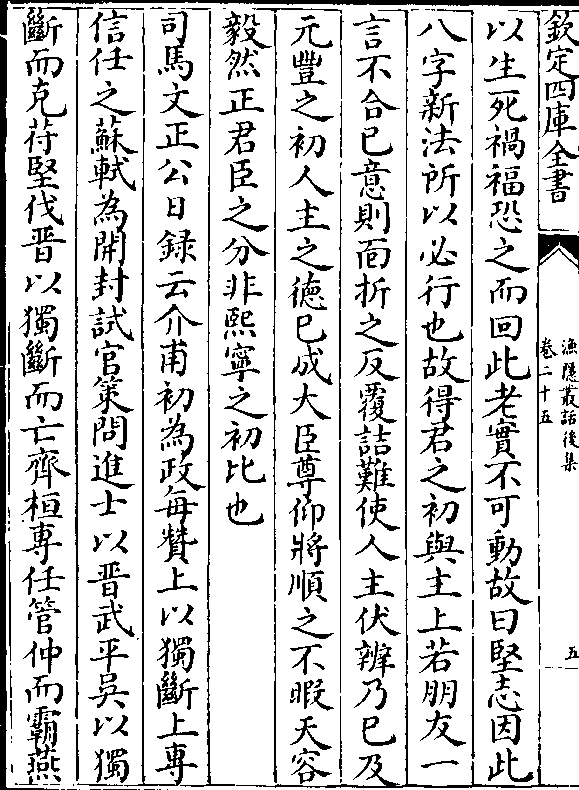 欽定四庫全書
漁隱叢話後集
卷二十五
五
以生死禍福恐之而回此老實不可動故曰堅志因此
八字新法所以必行也故得君之初與主上若朋友一
言不合已意則面折之反覆詰難使人主伏辨乃已及
元豐之初人主之德已成大臣尊仰將順之不暇天容
毅然正君臣之分非熙寧之初比也
司馬文正公日錄云介甫初為政每贊上以獨斷上專
信任之蘇軾為開封試官策問進士以晋武平吳以獨
斷而克苻堅伐晋以獨斷而亡齊桓専任管仲而霸燕